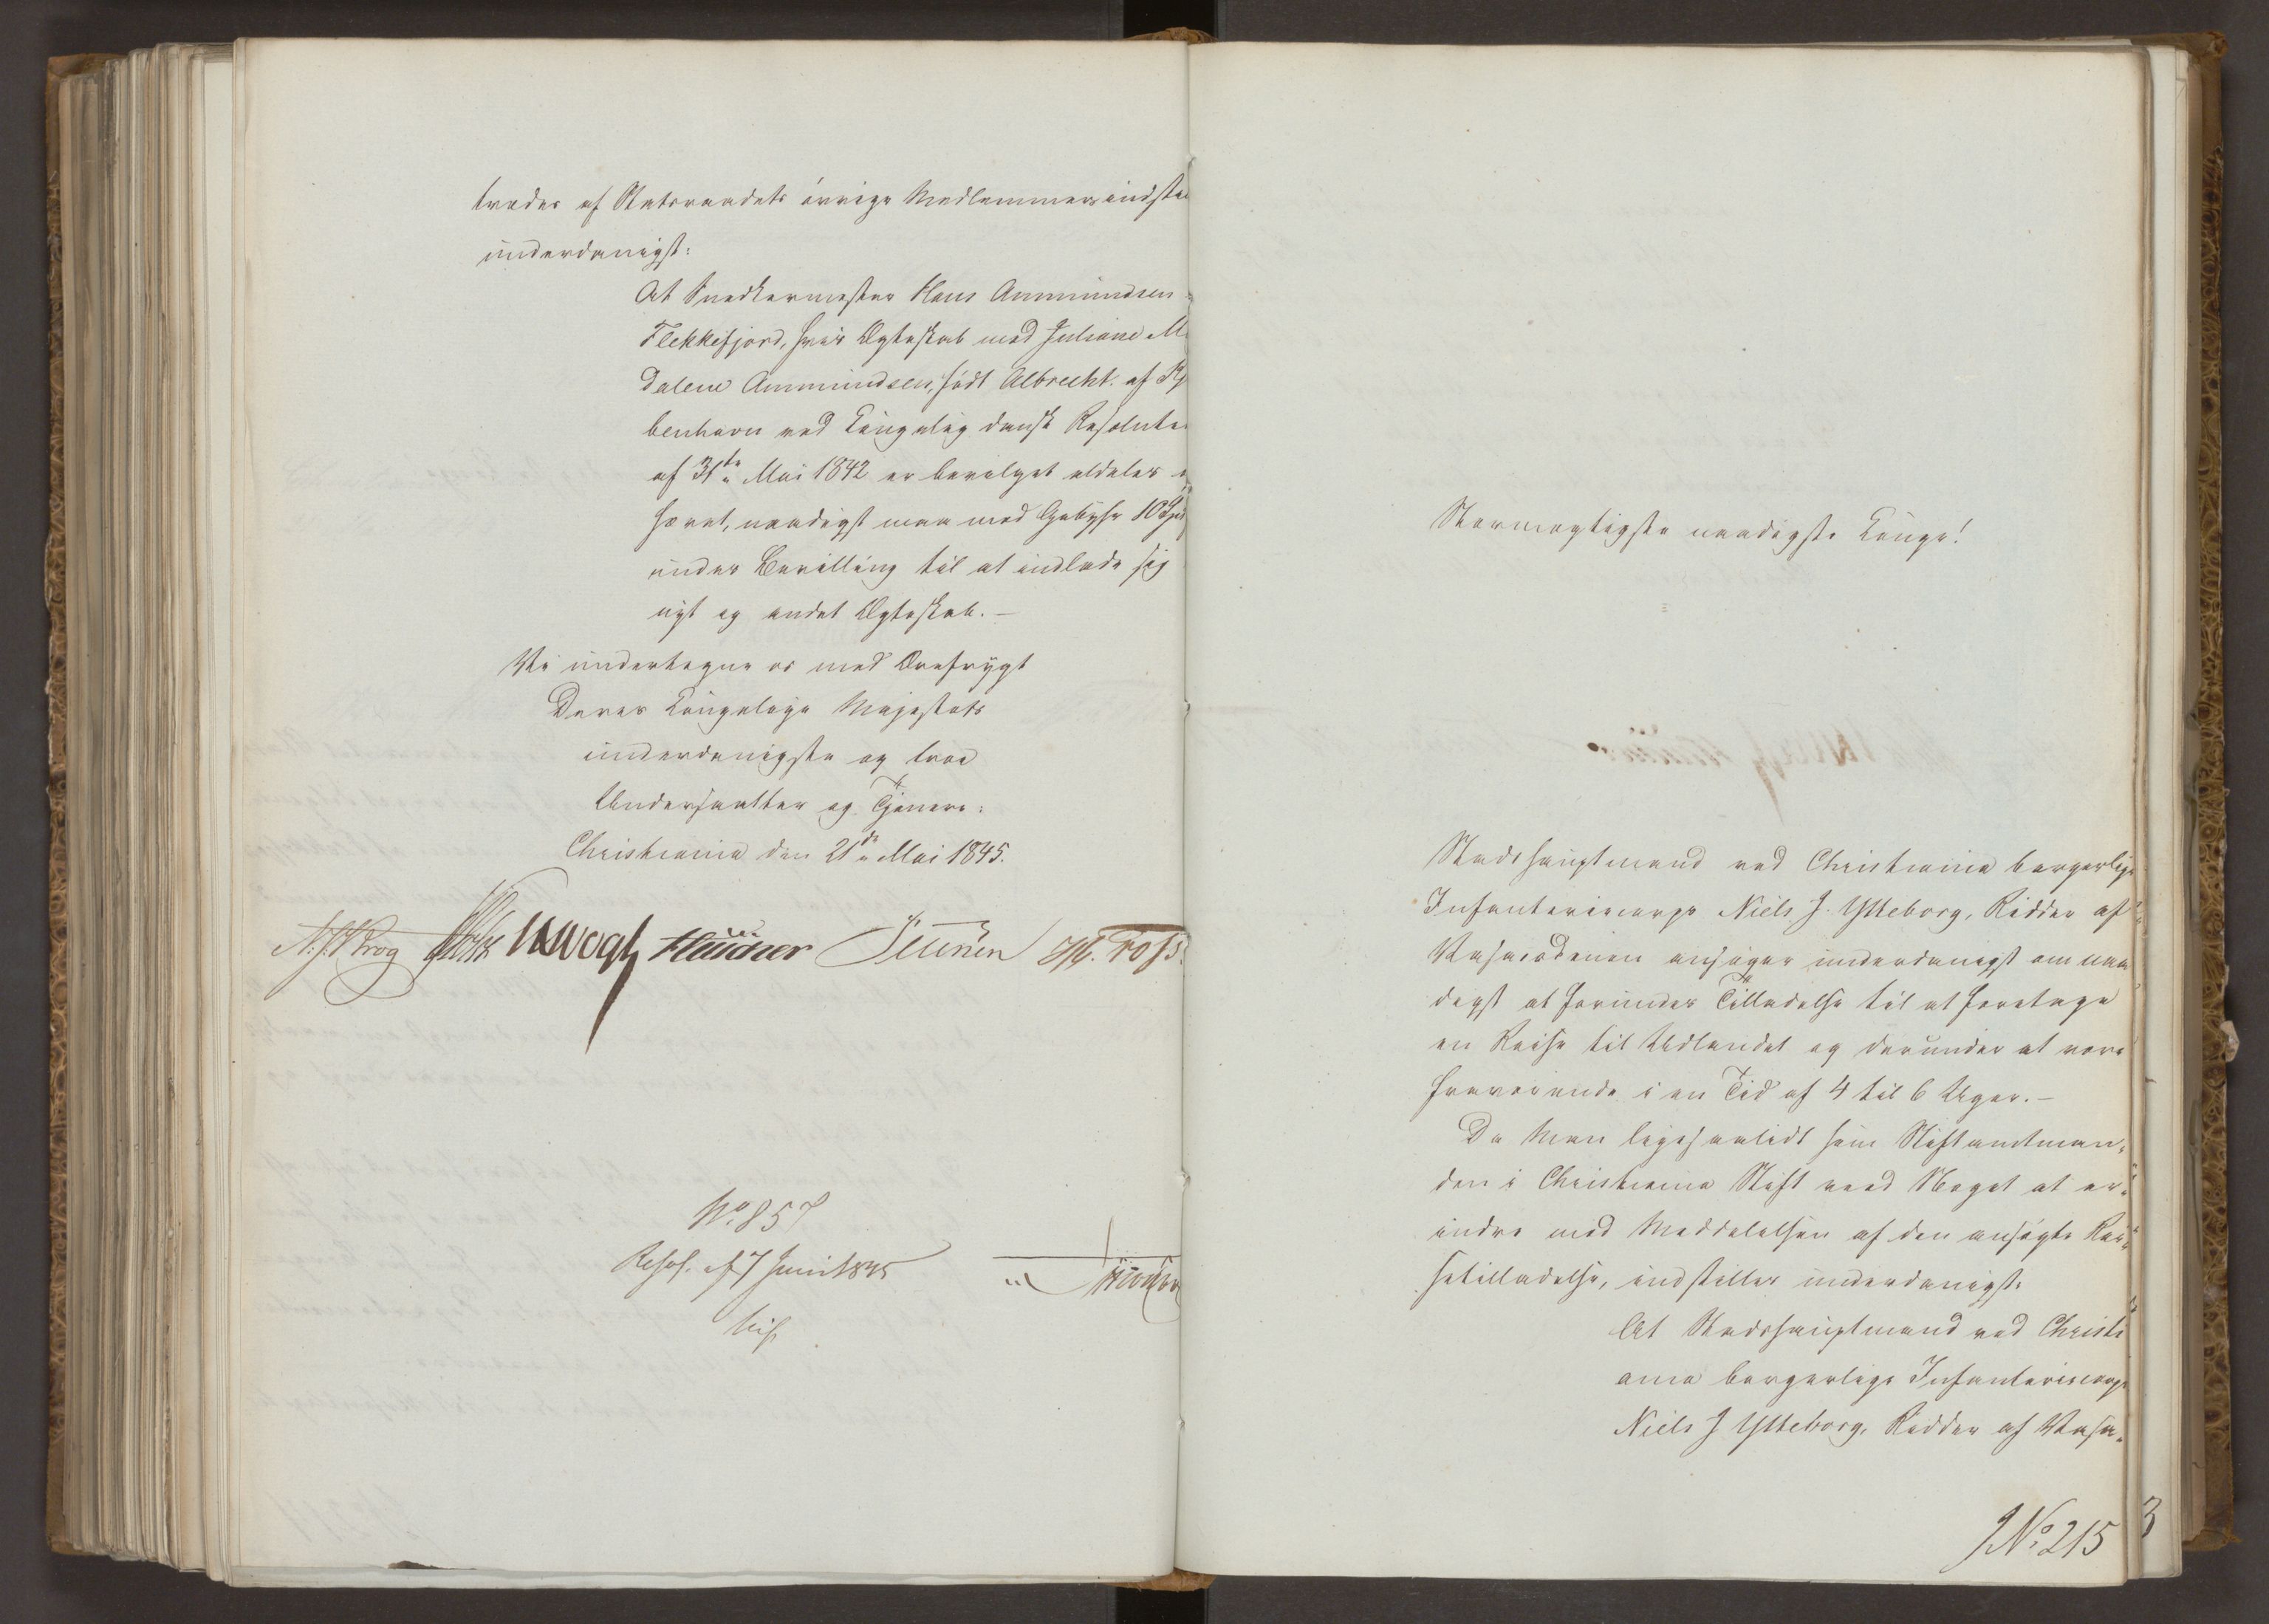 trædes af Statsraadets øvrige Medlemmer indstil
underdanigst:
At Snedkermester Hans Ammundsen
Flekkefjord, hvis Ægteskab med Juliane M
dalene Ammundsen, født Albrecht af Kjø
benhavn ved Kongelig dansk Resolution
af 31te Mai 1842 er bevilget aldeles
hævet, naadigst maa mod Gebyhr 10 Spd
under Bevilling til at indlade sig
nyt og andet Ægteskab. –
Vi undertegne os med Ærefrygt
Deres Kongelige Majestæts
underdanigste og troe
Undersaatter og Tjenere:
Christiania den 21de Mai 1845.
N. J. Krog Vogt Petersen J. H. Foss
No 857
Resol. af 7 Juni 1845
Stormægtigste naadigste Konge!
Stadshauptmand ved Christiania borgerlige
Infanteriecorps Niels J. Ytteborg, Ridder af
Vasaordenen ansøger underdanigst om naa
digst at forundes Tilladelse til at foretage
en Reise til Udlandet og derunder at være
fraværende i en Tid af 4 til 6 Uger. –
Da Man ligesaalidt som Stiftamtman-
den i Christiania Stift veed Noget at er-
indre mod Meddelelsen af den ansøgte Rei-
setilladelse, indstilles underdanigst:
At Stadshauptmand ved Christi
ania borgerlige Infanteriecorps
Niels J Ytteborg, Ridder af Vasa-
J No. 215
3